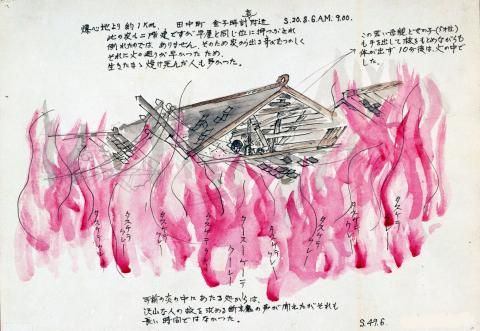 爆心地より約1Km, 田中町 金子時計附近 S.20.8.6.A.M.9.00.
此の家も二階建ですが平屋と同じ位に押つぶされ
倒れたのでは、ありません、そのため家から出る事がむつかしく
それに火の廻りが早かったため
生きたまゝ焼け死んだ人も多かった。
この若い母親と女の子(5才位)
も手を出して救をもとめながらも
体が出ず10分後は、火の中で
した。
タスケテクレー
タスケテクレー
タスケテクレー
タスケテクレー
タースーケーテ
クーレー
タスケテクレー
タスケテクレー
タスケテクレー
手前の炎の中にあたる処からは、
沢山な人の救を求める断末魔の声が聞えたがそれも
長い時間ではなかった。
S.49.6.